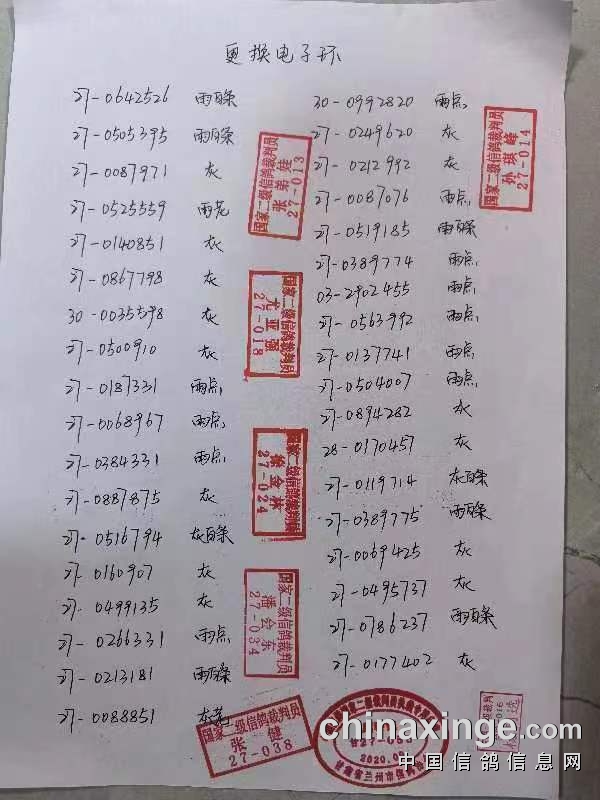 更换电子环
27-0642526 雨白条
27-0505395 雨白条
27-0087971 灰
27-0525559 雨花
27-0140851 灰
27-0867798 灰
30-0035598 灰
27-0500910 灰
27-0187331 雨点
27-0068967 雨点
27-0384331 雨点
27-0887875 灰
27-0516794 灰白条
27-0160907 灰
27-0499135 灰
27-0266331 雨点
27-0213181 雨白条
27-0088851 灰花
30-0992820 雨点
27-0249620 灰
27-0212992 灰
27-0087076 雨点
27-0519185 雨白条
27-0389774 雨点
03-2902455 雨点
27-0563992 雨点
27-0137741 雨点
27-0504007 雨点
27-0894282
28-0170457 灰
27-0119714 灰白条
27-0389775 雨白条
27-0069425 灰
27-0495737 灰
27-0786237 雨白条
27-0177402 灰
国家二级信鸽裁判员
张弟娃
27-013
国家二级信鸽裁判员
孙琪峰
27-014
国家二级信鸽裁判员
尤亚强
27-018
国家二级信鸽裁判员
徐金林
27-024
国家二级信鸽裁判员
潘会东
27-034
国家二级信鸽裁判员
张健
27-038
2020.09
甘肃省兰州市信鸽
chinaxinge.com
中国信鸽信息网